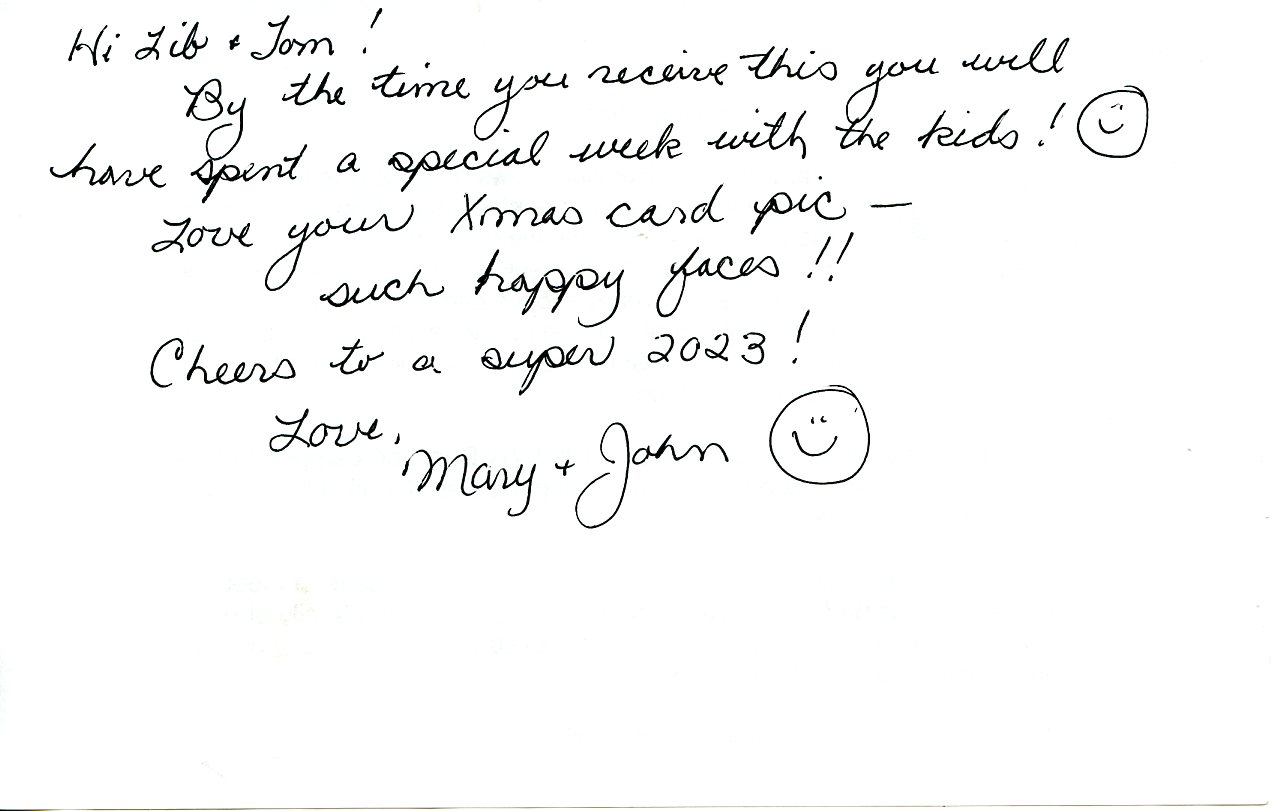 Hi Lib + Tom!
By the time you receive this you will
have spent a special week with the kids!
Love your Xmas card pic —
such happy faces!!
Cheers to a super 2023!
Love,
Mary + John